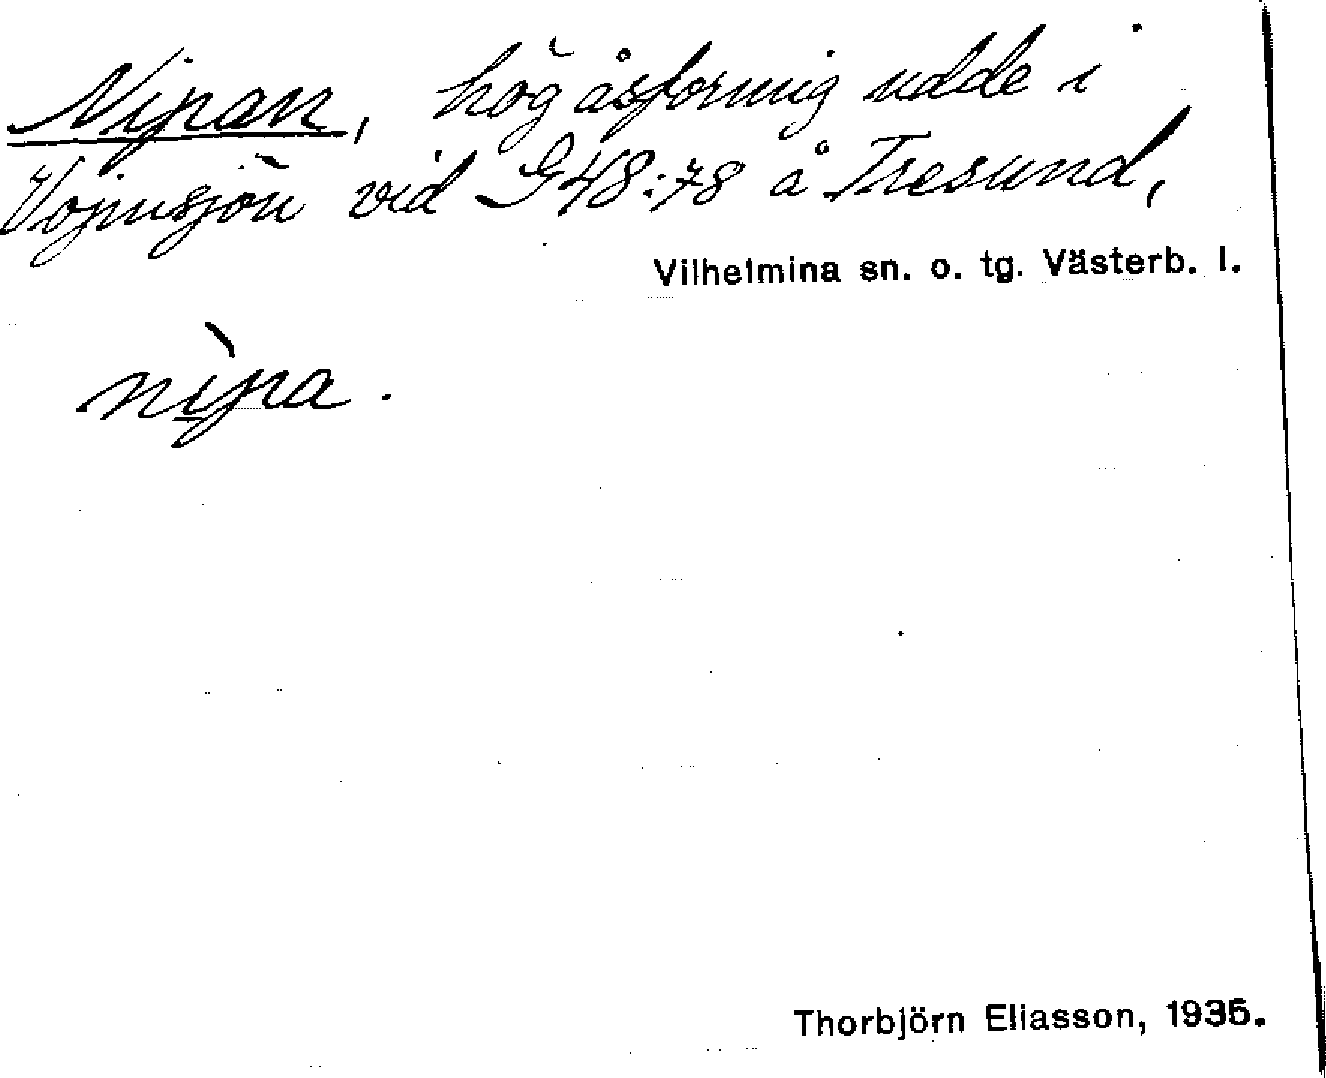 Nipan, hög åsformig udde i
Vojmsjön vid G48:78 å Tresund,
Vilhelmina sn. o. tg. Västerb. l.
nìpa.
Thorbjörn Eliasson, 1935.